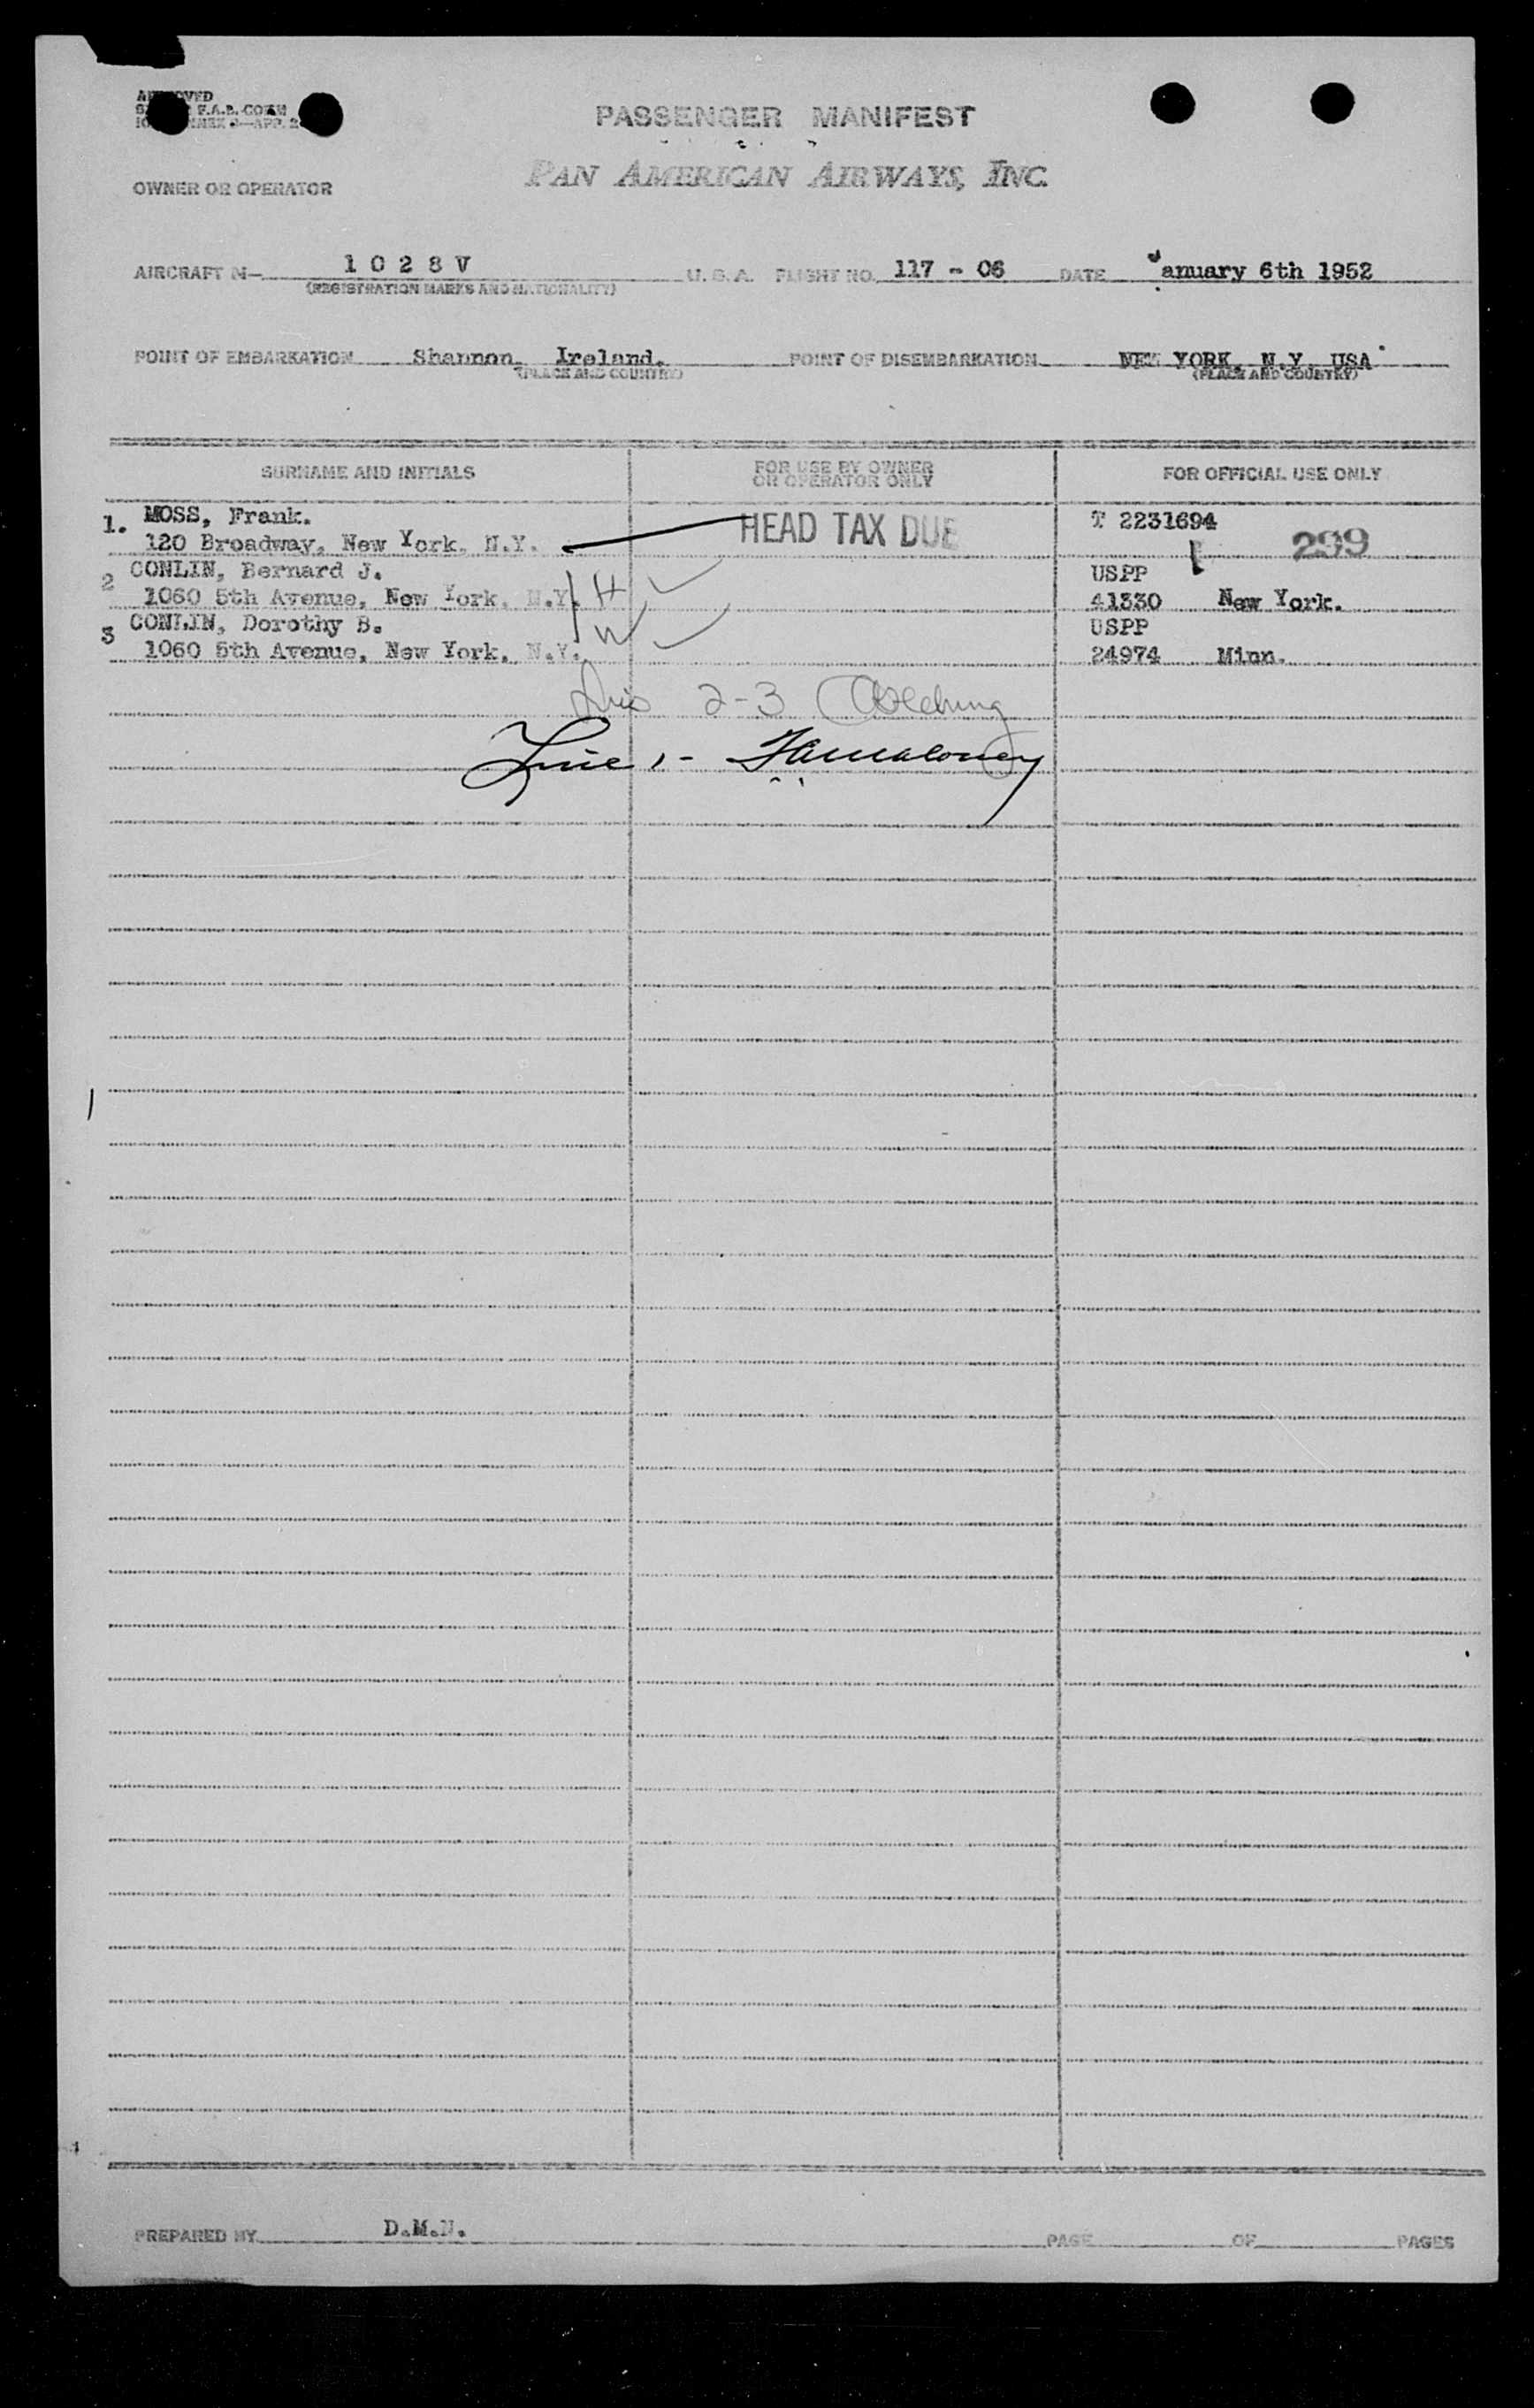 PASSENGER MANIFEST
PAN AMERICAN AIRWAYS, INC.
OWNER OR OPERATOR
AIRCRAFT N— 1 0 2 8 V U. S. A. FLIGHT NO. 117 - 06 DATE January 6th 1952
(REGISTRATION MARKS AND NATIONALITY)
POINT OF EMBARKATION Shannon, Ireland. POINT OF DISEMBARKATION NEW YORK, N.Y. USA
(PLACE AND COUNTRY) (PLACE AND COUNTRY)
SURNAME AND INITIALS FOR USE BY OWNER OR OPERATOR ONLY FOR OFFICIAL USE ONLY
1. MOSS, Frank. HEAD TAX DUE T 2231694
120 Broadway, New York, N.Y. 299
2 CONLIN, Bernard J. USPP
1060 5th Avenue, New York, N.Y. H 41330 New York.
3 CONLIN, Dorothy B. USPP
1060 5th Avenue, New York, N.Y. W 24974 Minn.
2-3
Line 1 -
PREPARED BY D.M.N. PAGE OF PAGES